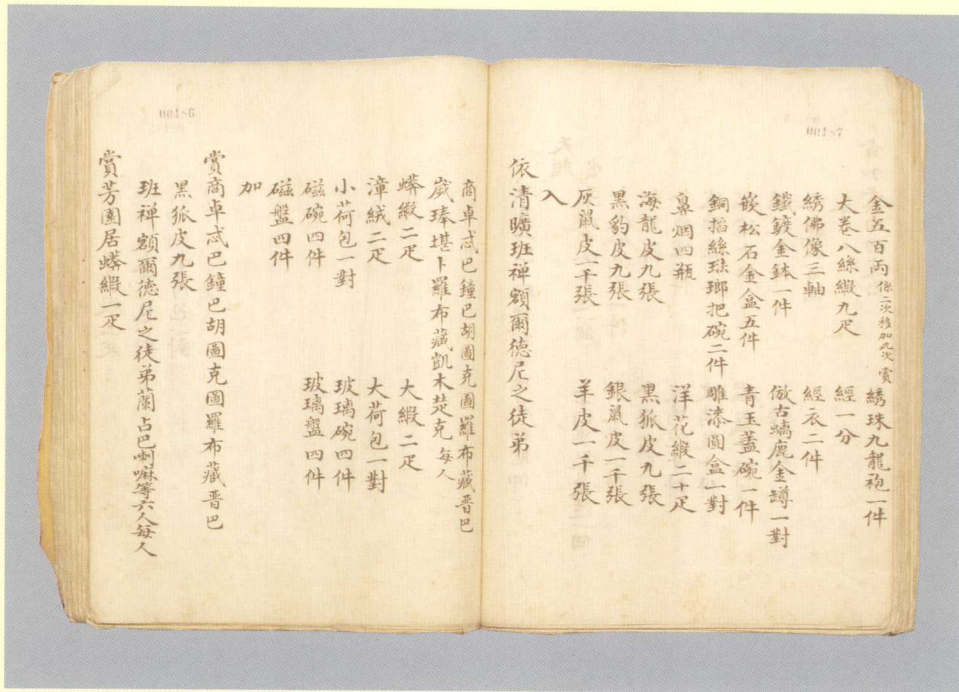 00187
金五百兩 係二次移加九次賞 綉珠九龍袍一件
大卷八絲緞九疋 經一分
綉佛像三軸 經衣二件
鐵鋄金鉢一件 倣古螭鹿金罇一對
嵌松石金盒五件 青玉蓋碗一件
銅搯絲琺瑯把碗二件 雕漆圓盒一對
鼻烟四瓶 洋花緞二十疋
海龍皮九張 黑狐皮九張
黑豹皮九張 銀鼠皮一千張
灰鼠皮一千張 羊皮一千張
入
依清曠班禪額爾德尼之徒弟
00186
商卓忒巴鐘巴胡圖克圖羅布藏晋巴
歲琫堪卜羅布藏凱木楚克每人
蟒緞二疋 大緞二疋
漳絨二疋 大荷包一對
小荷包一對 玻璃碗四件
磁碗四件 玻璃盤四件
磁盤四件
加
賞商卓忒巴鐘巴胡圖克圖羅布藏晋巴
黑狐皮九張
班禪額爾德尼之徒弟蘭占巴喇嘛等六人每人
賞芳園居蟒緞一疋